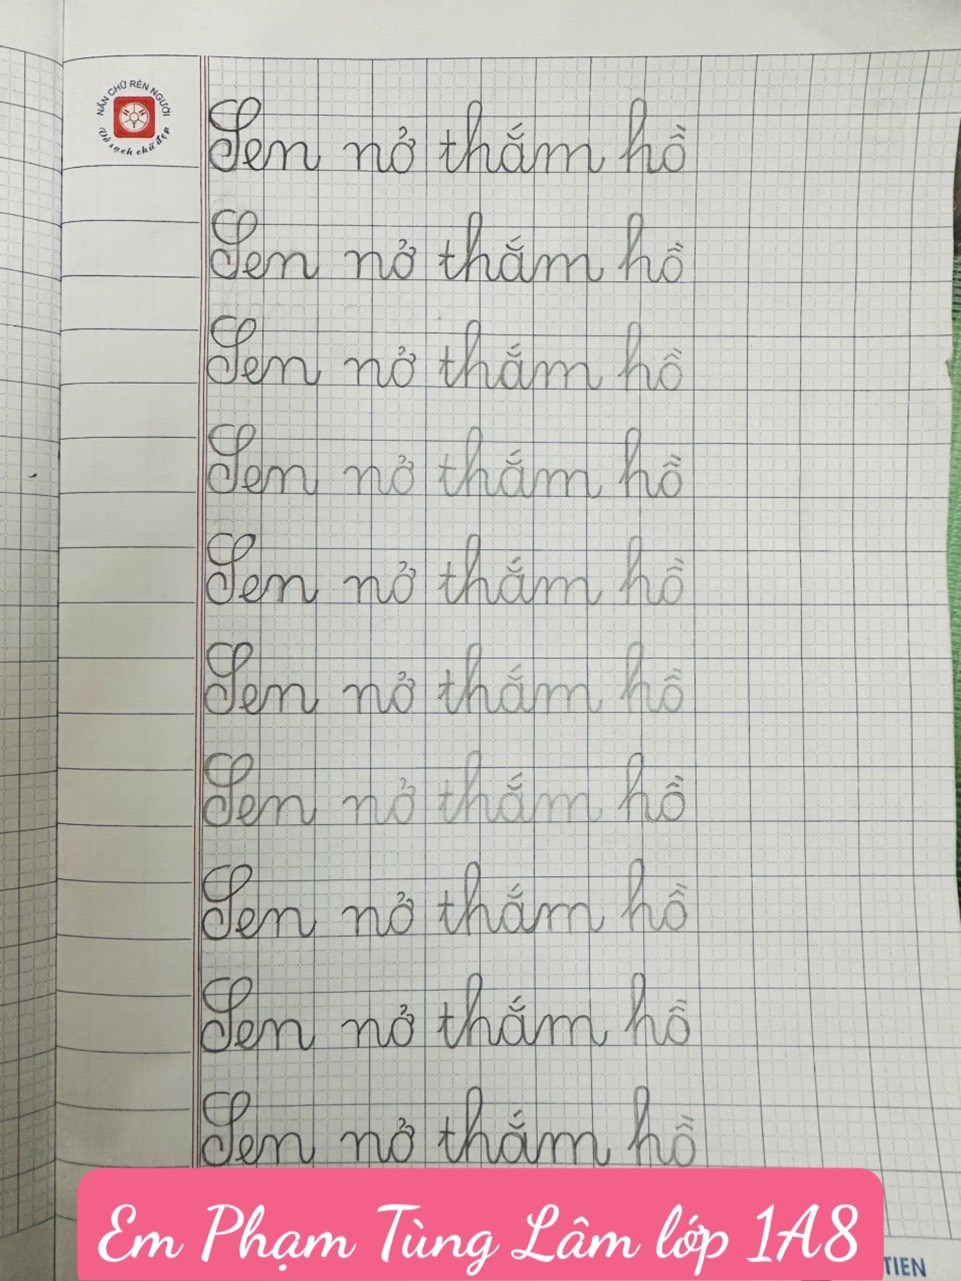 NẮN CHỮ RÈN NGƯỜI
Để sạch chữ đẹp
Sen nở thắm hồ
Sen nở thắm hồ
Sen nở thắm hồ
Sen nở thắm hồ
Sen nở thắm hồ
Sen nở thắm hồ
Sen nở thắm hồ
Sen nở thắm hồ
Sen nở thắm hồ
Sen nở thắm hồ
Em Phạm Tùng Lâm lớp 1A8
TIEN